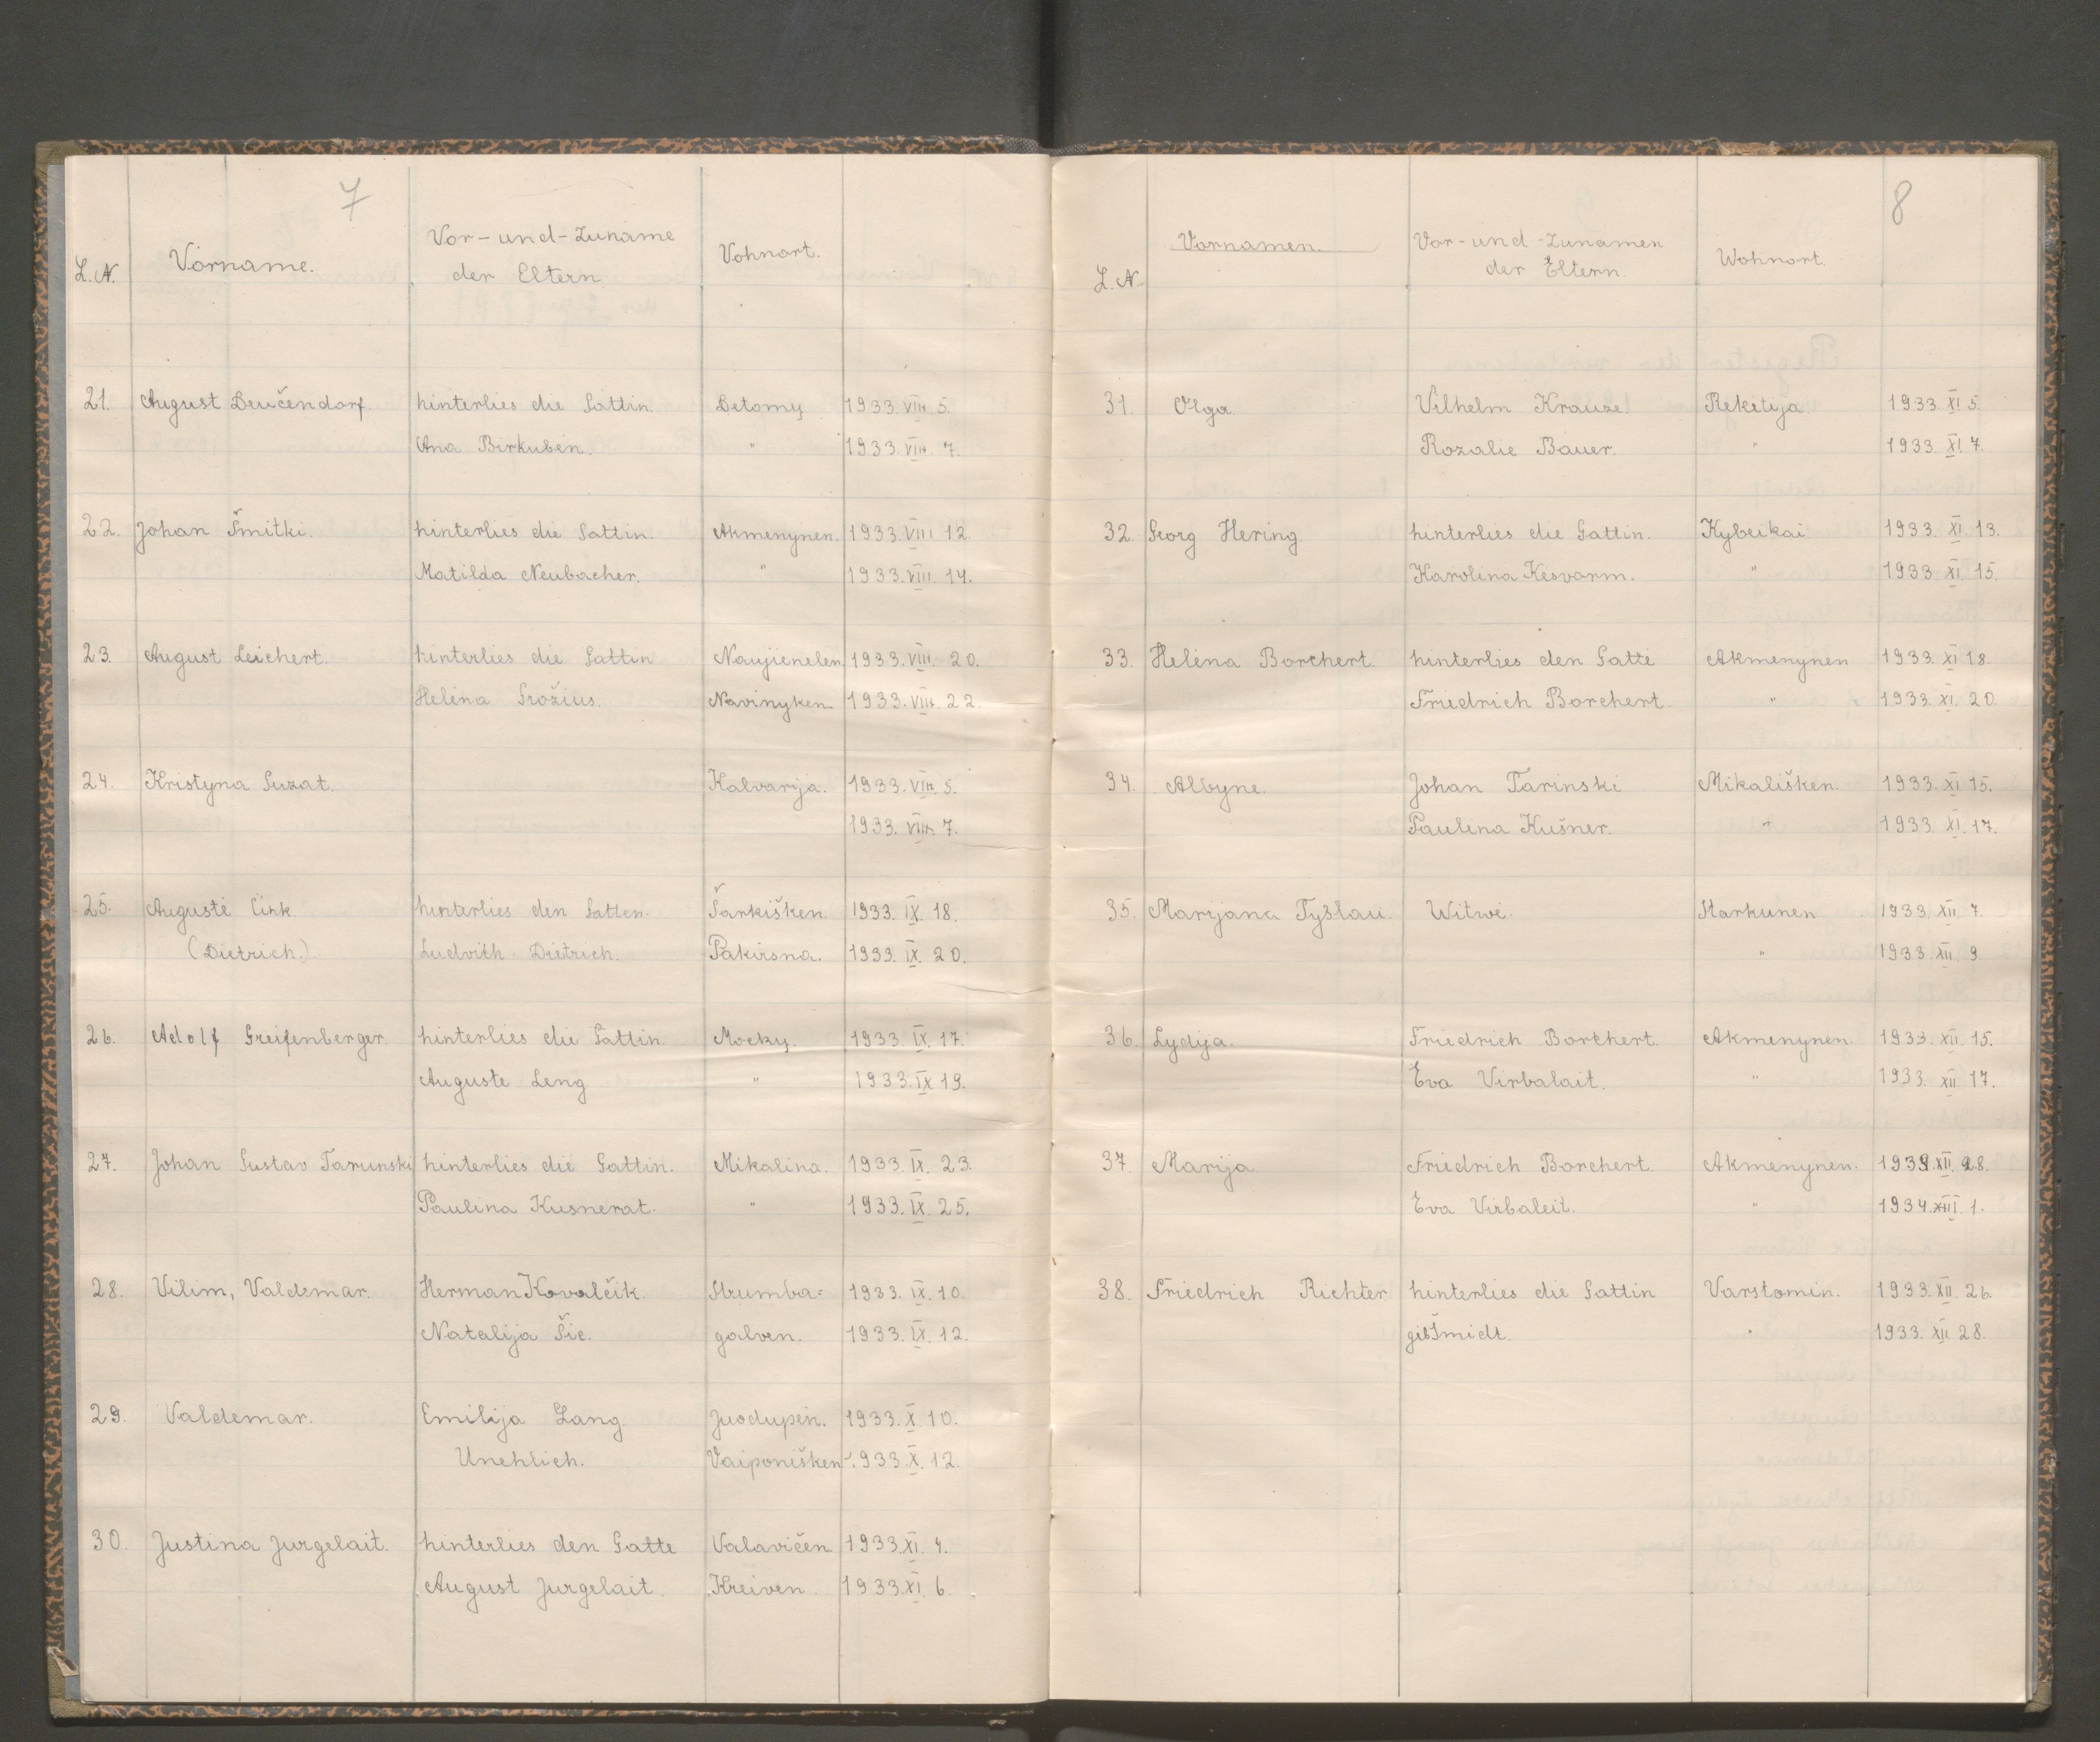 7
L.N. Vorname. Vor-und-Zuname der Eltern. Vohnort.
21. August Deučendorf. hinterlies die Gattin. Detomų 1933.VIII.5.
Ana Birkuben. " 1933.VIII.7.
22. Johan Šmitki. hinterlies die Gattin. Akmenynen. 1933.VIII 12.
Matilda Neubacher. " 1933.VIII.14.
23. August Leichert. hinterlies die Gattin Naujienelen 1933.VIII.20.
Helena Grožius. Navinyken 1933.VIII.22.
24. Kristyna Guzat. Kalvarija. 1933.VIII.5.
1933.VIII.7.
25. Augusté Cink. hinterlies den Gatten. Šarkišken. 1933.IX.18.
(Dietrich). Ludvith Dietrich. Pakirsna. 1933.IX.20.
26. Adolf Greifenberger. hinterlies die Gattin. Mockų. 1933.IX.17.
Auguste Leng " 1933.IX 19.
27. Johan Gustav Tarunski hinterlies die Gattin. Mikalina. 1933.IX.23.
Paulina Kusnerat. " 1933.IX.25.
28. Vilim, Valdemar. Herman Kovalčik. Strumba= 1933.IX.10.
Natalija Šic. galven. 1933.IX.12.
29. Valdemar. Emilija Lang. Juodupen. 1933.X.10.
Unehlich. Vaiponišken 1933.X.12.
30. Justina Jurgelait. hinterlies den Gatte Valavičen. 1933.XI.4.
August Jurgelait. Kreiven. 1933.XI.6.
8
L.N. Vornamen. Vor-und-Zunamen der Eltern. Wohnort.
31. Olga. Vilhelm Krauze. Reketija 1933.XI 5.
Rozalie Bauer. " 1933.XI 7.
32. Georg Hering. hinterlies die Gattin. Kybeikai 1933.XI.13.
Karolina Kesvarm. " 1933 XI.15.
33. Helena Borchert. hinterlies den Gatte Akmenynen 1933.XI 18.
Friedrich Borchert. " 1933.XI.20.
34. Albyne. Johan Tarinski Mikališken. 1933.XI 15.
Paulina Kušner. " 1933.XI.17.
35. Marijana Tyslau. Witwe. Starkunen 1933.XII.7.
" 1933.XII.9
36. Lydija. Friedrich Borchert. Akmenynen. 1933.XII.15.
Eva Virbalait. " 1933.XII 17.
37. Marija. Friedrich Borchert. Akmenynen. 1933.XII.28.
Eva Virbaleit. " 1934.I 1.
38. Friedrich Richter hinterlies die Gattin Varstomin. 1933.XII.26.
geb Šmidt. " 1933.XII 28.